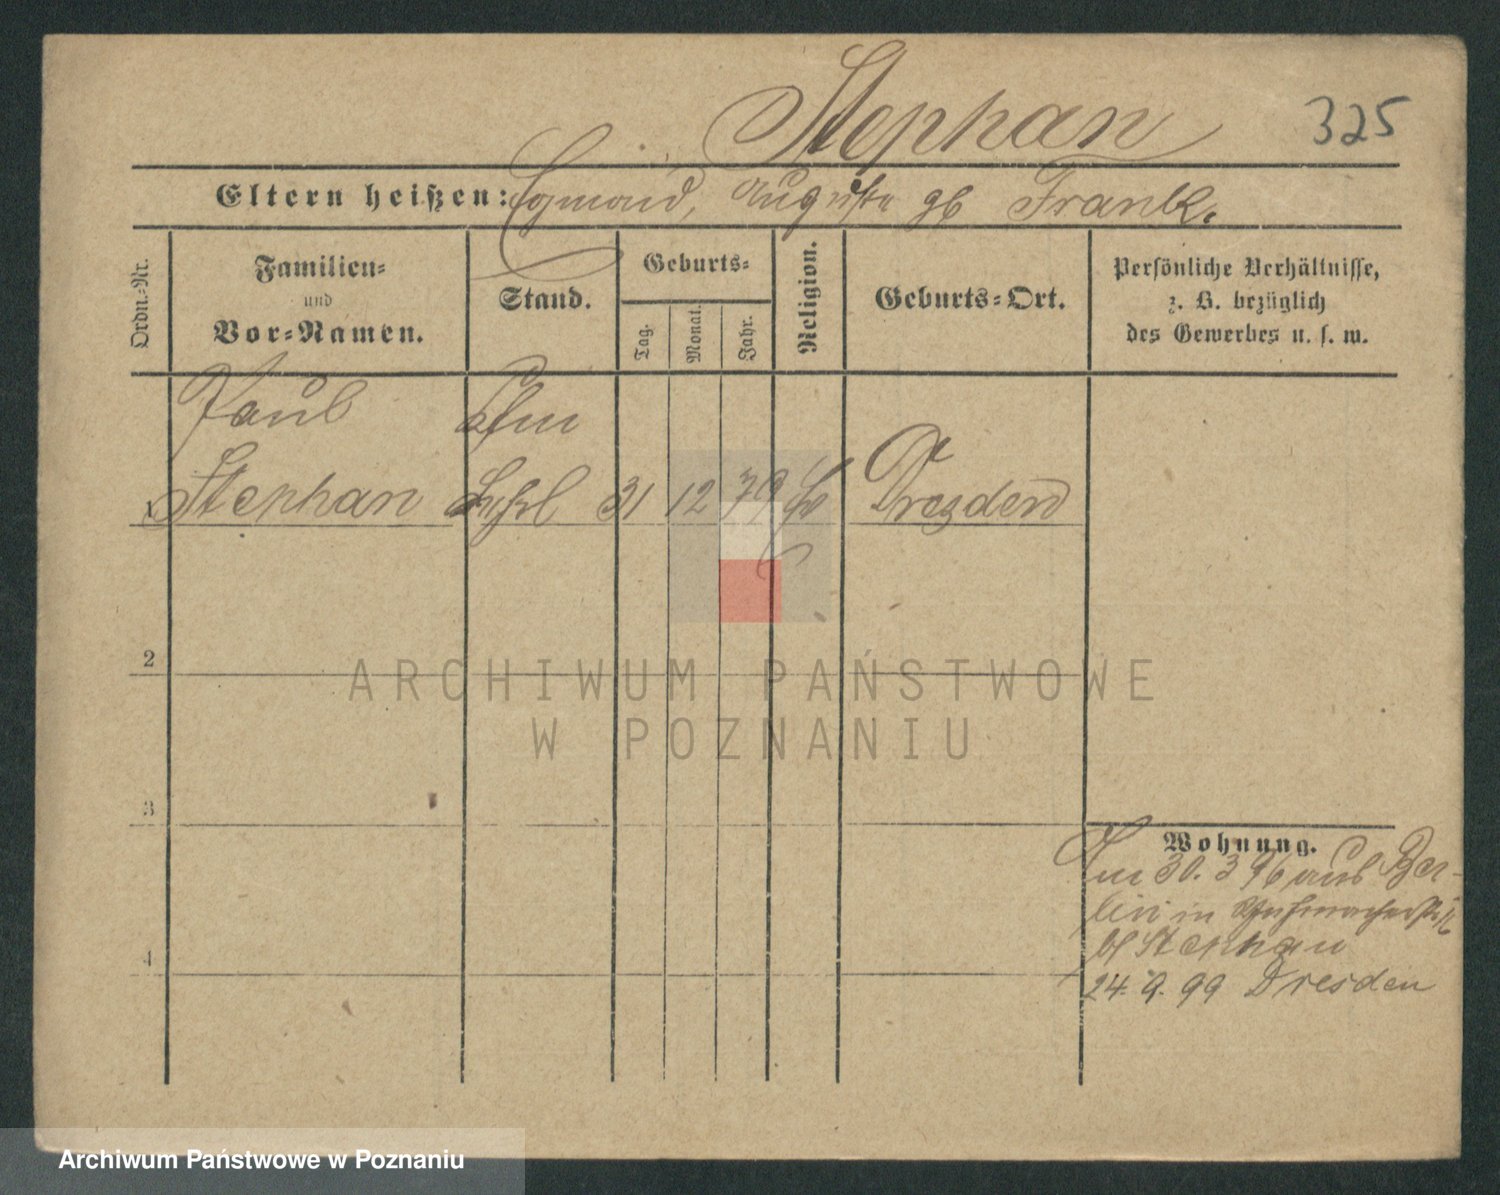 Stephan
325
Eltern heißen: Egmond, Auguste gb Frank.
Ordn.-Nr.
Familien-
und
Vor-Namen.
Stand.
Geburts-
Tag.
Monat.
Jahr.
Religion.
Geburts-Ort.
Persönliche Verhältnisse,
z. B. bezüglich
des Gewerbes u. s. w.
Paul Kfm
1 Stephan Lehrl 31 12 79 Ev Dresden
2
ARCHIWUM PAŃSTWOWE
W POZNANIU
3
Wohnung.
30. 3 96 aus Ber-
lin in
bl Stephan
4
24. 9. 99 Dresden
Archiwum Państwowe w Poznaniu